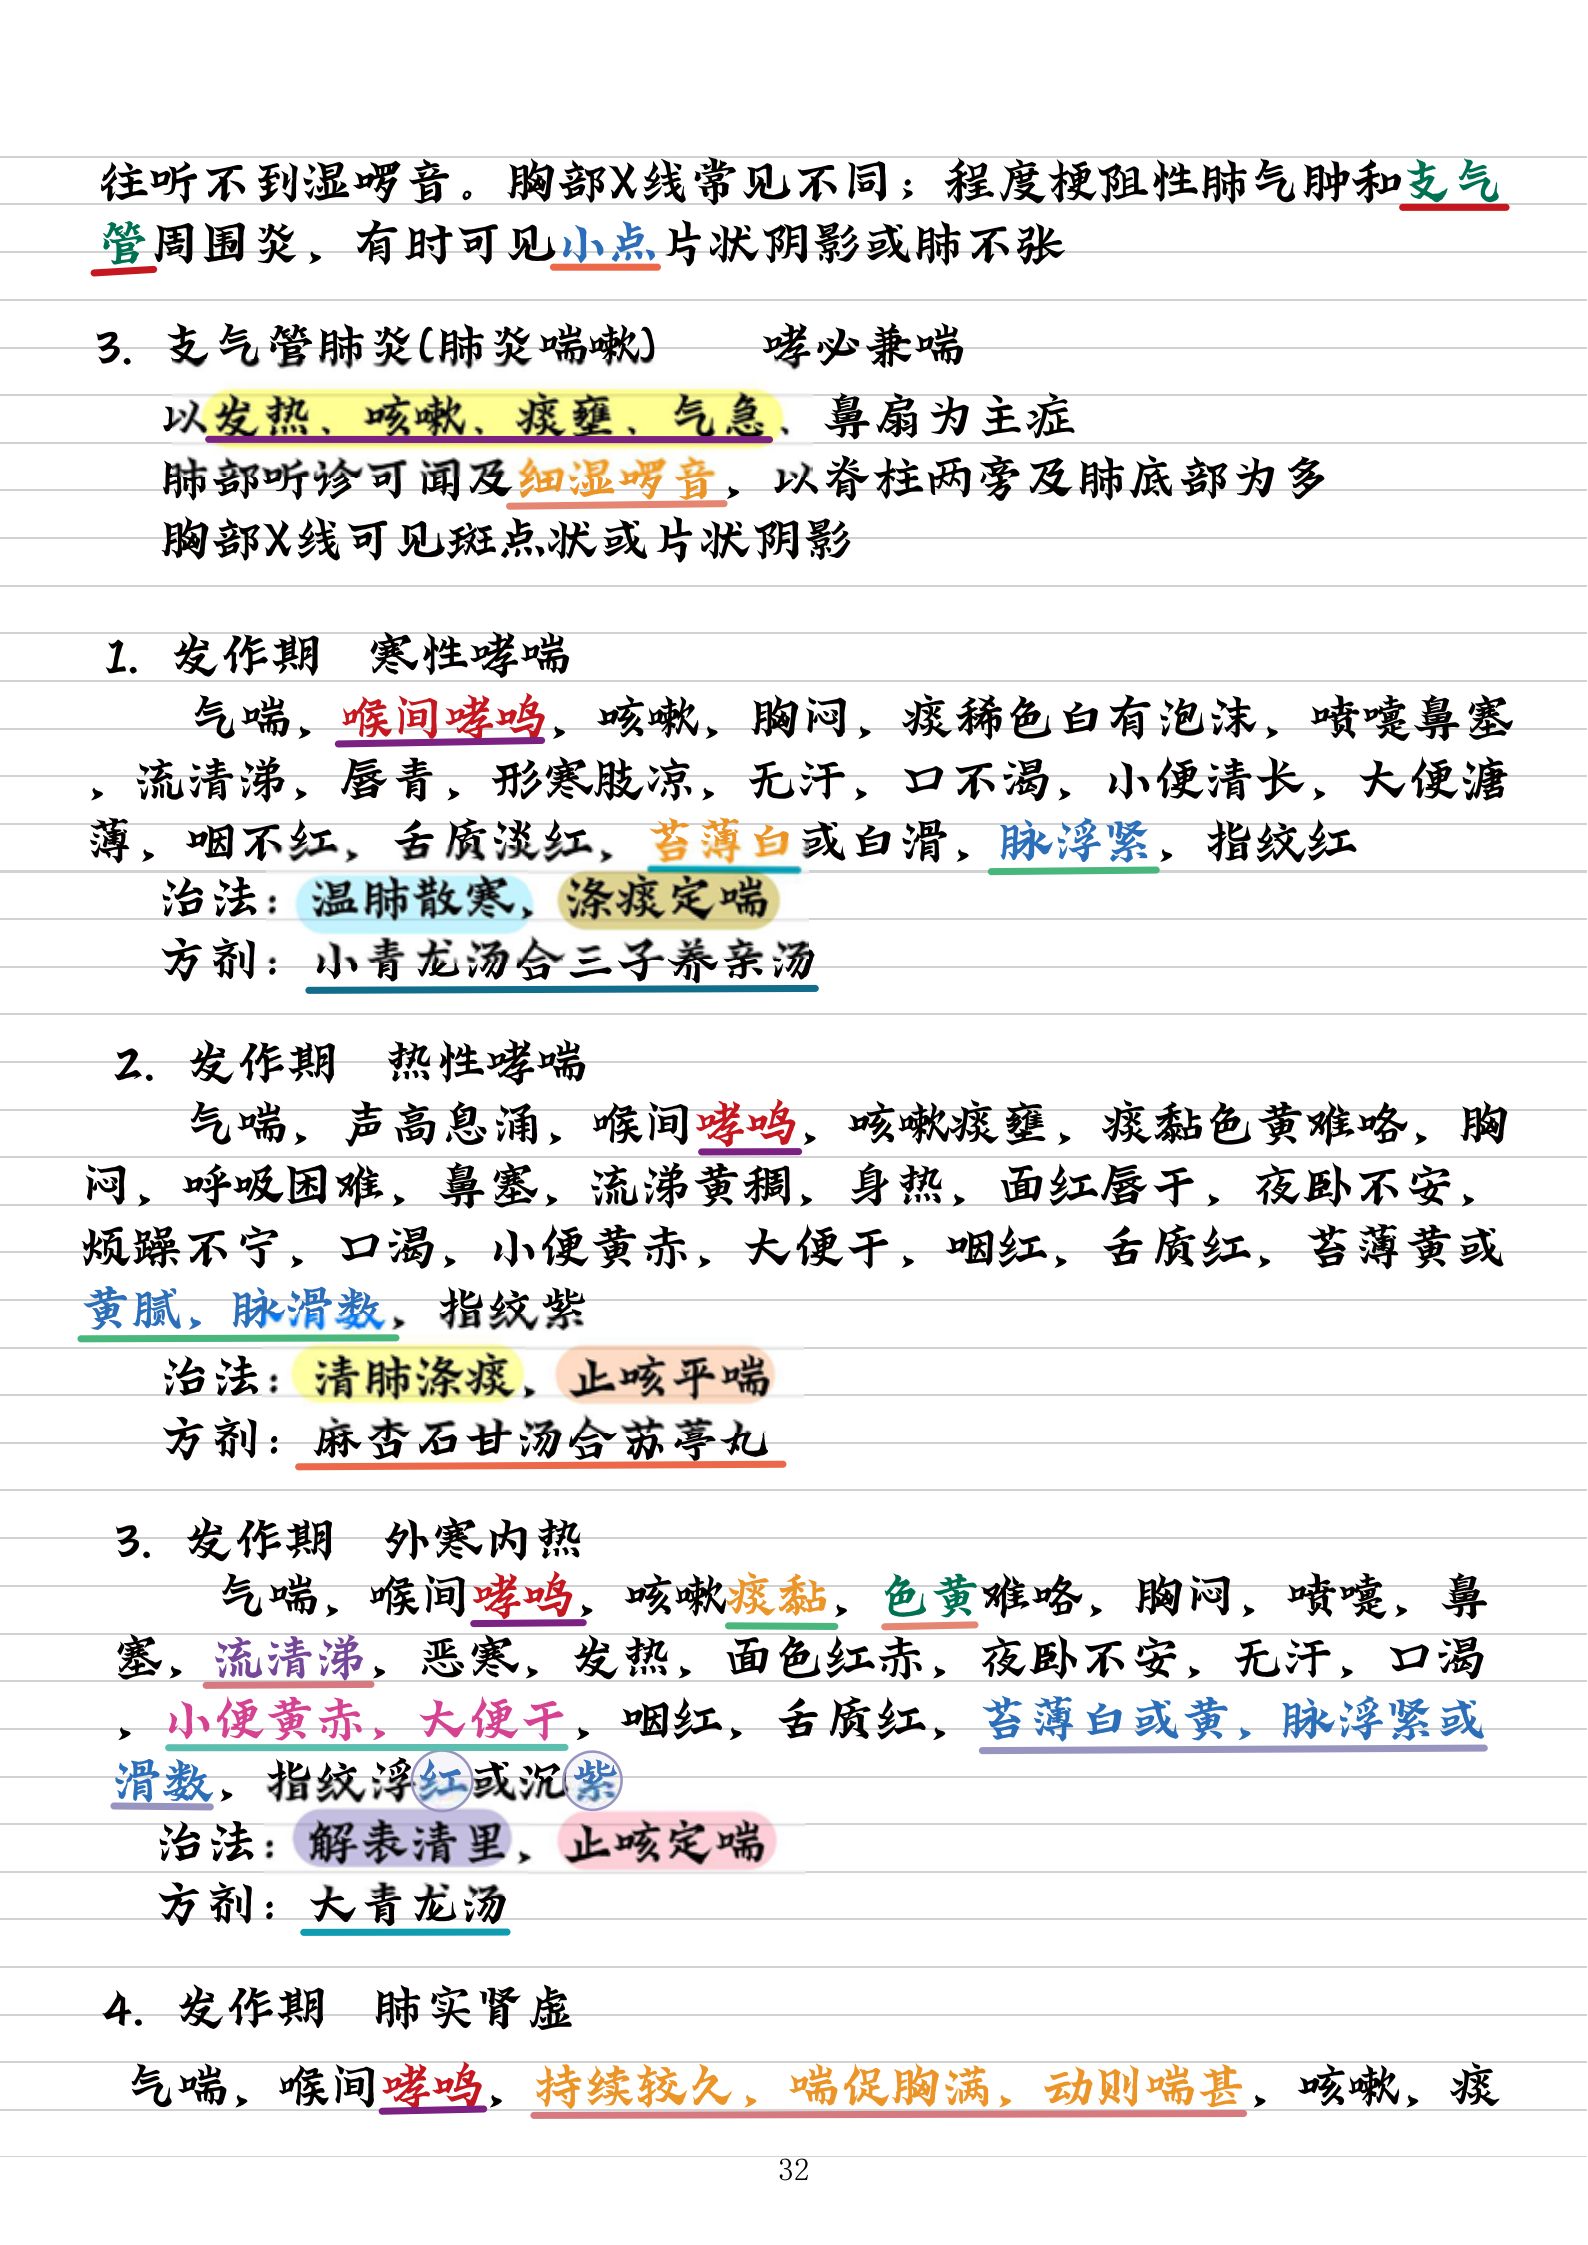 往听不到湿啰音。胸部X线常见不同；程度梗阻性肺气肿和支气
管周围炎，有时可见小点片状阴影或肺不张
3. 支气管肺炎(肺炎喘嗽) 哮必兼喘
以发热、咳嗽、痰壅、气急、鼻扇为主症
肺部听诊可闻及细湿啰音，以脊柱两旁及肺底部为多
胸部X线可见斑点状或片状阴影
1. 发作期 寒性哮喘
气喘，喉间哮鸣，咳嗽，胸闷，痰稀色白有泡沫，喷嚏鼻塞
，流清涕，唇青，形寒肢凉，无汗，口不渴，小便清长，大便溏
薄，咽不红，舌质淡红，苔薄白或白滑，脉浮紧，指纹红
治法：温肺散寒，涤痰定喘
方剂：小青龙汤合三子养亲汤
2. 发作期 热性哮喘
气喘，声高息涌，喉间哮鸣，咳嗽痰壅，痰黏色黄难咯，胸
闷，呼吸困难，鼻塞，流涕黄稠，身热，面红唇干，夜卧不安，
烦躁不宁，口渴，小便黄赤，大便干，咽红，舌质红，苔薄黄或
黄腻，脉滑数，指纹紫
治法：清肺涤痰，止咳平喘
方剂：麻杏石甘汤合苏葶丸
3. 发作期 外寒内热
气喘，喉间哮鸣，咳嗽痰黏，色黄难咯，胸闷，喷嚏，鼻
塞，流清涕，恶寒，发热，面色红赤，夜卧不安，无汗，口渴
，小便黄赤，大便干，咽红，舌质红，苔薄白或黄，脉浮紧或
滑数，指纹浮红或沉紫
治法：解表清里，止咳定喘
方剂：大青龙汤
4. 发作期 肺实肾虚
气喘，喉间哮鸣，持续较久，喘促胸满，动则喘甚，咳嗽，痰
32